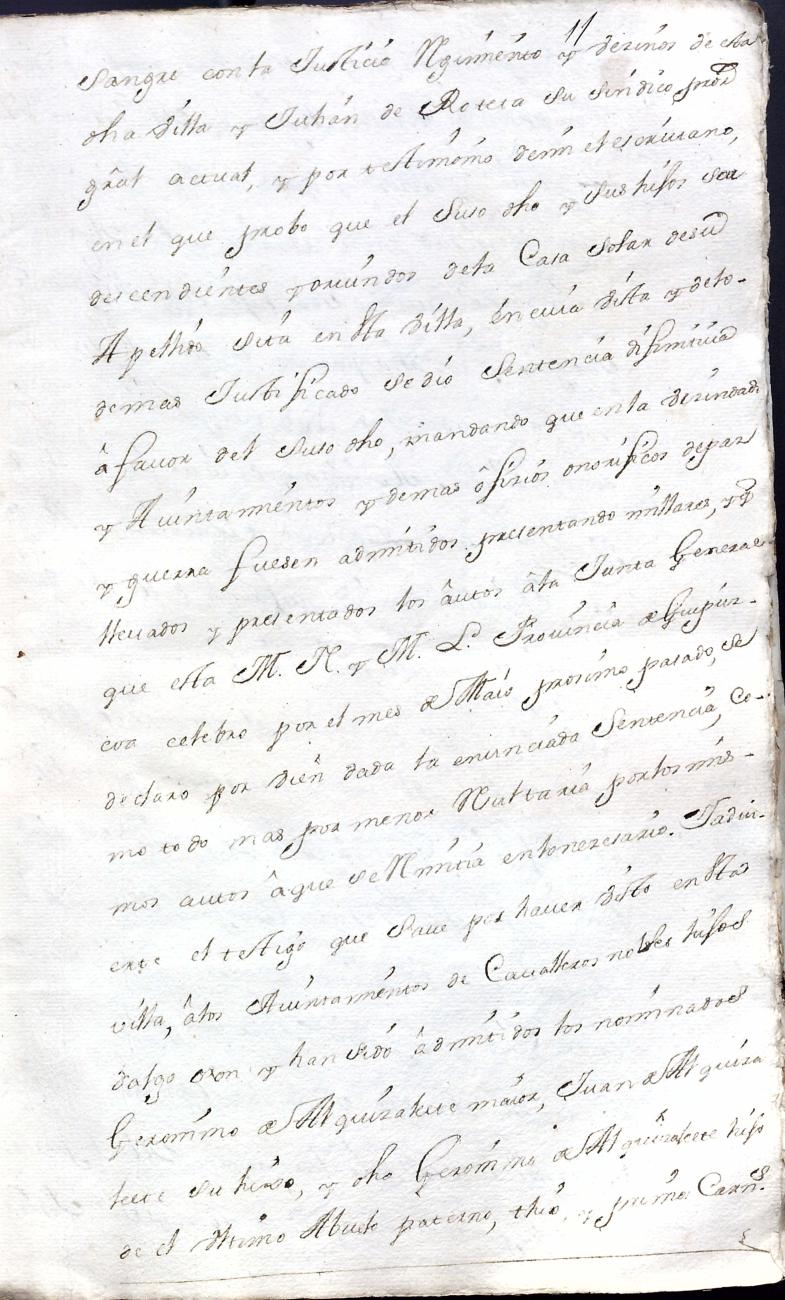 11
Sangre con la Justicia Regimiento y vezinos de esta
dha villa y Juhan de Roteta su sindico pror
gral actual, y por testimonio demi el escrivano,
en el que probo que el suso dho y sus hijos son
descendientes y oriundos dela Casa solar desu
Apellido sita en esta villa, en cuia vista y delo-
demas Justificado se dio Sentencia difinitiva
â favor del suso dho, mandando que en la vezindad
y Aiuntamientos y demas ôficios onorificos de paz
y guerra fuesen admitidos presentando millares, y
llevados y presentados los âutos âla Junta General
que esta M. N. y M. L. Provincia de Guipuz-
coa celebro por el mes de Maio proximo pasado, se
declaro por bien dada la enunciada Sentencia, co-
mo todo mas por menor Resultaria por los mis-
mos autos âque se Remitia en lo necesario. Y adui-
erte el testigo que save por haver visto en esta
villa, âlos Aiuntamientos de Cavalleros nobles hijos
dalgo son y han sido âdmitidos los nominados
Geronimo de Alquizalete maior, Juan de Alquiza
lecte su hijo, y dho Geronimo de Alquizalete hijo
de el vltimo Abuelo paterno, thio, y primo Carns.